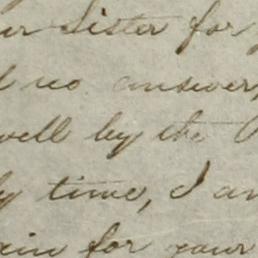 ur Sister for
d no answer,
well by the
by time, I am
ain for your